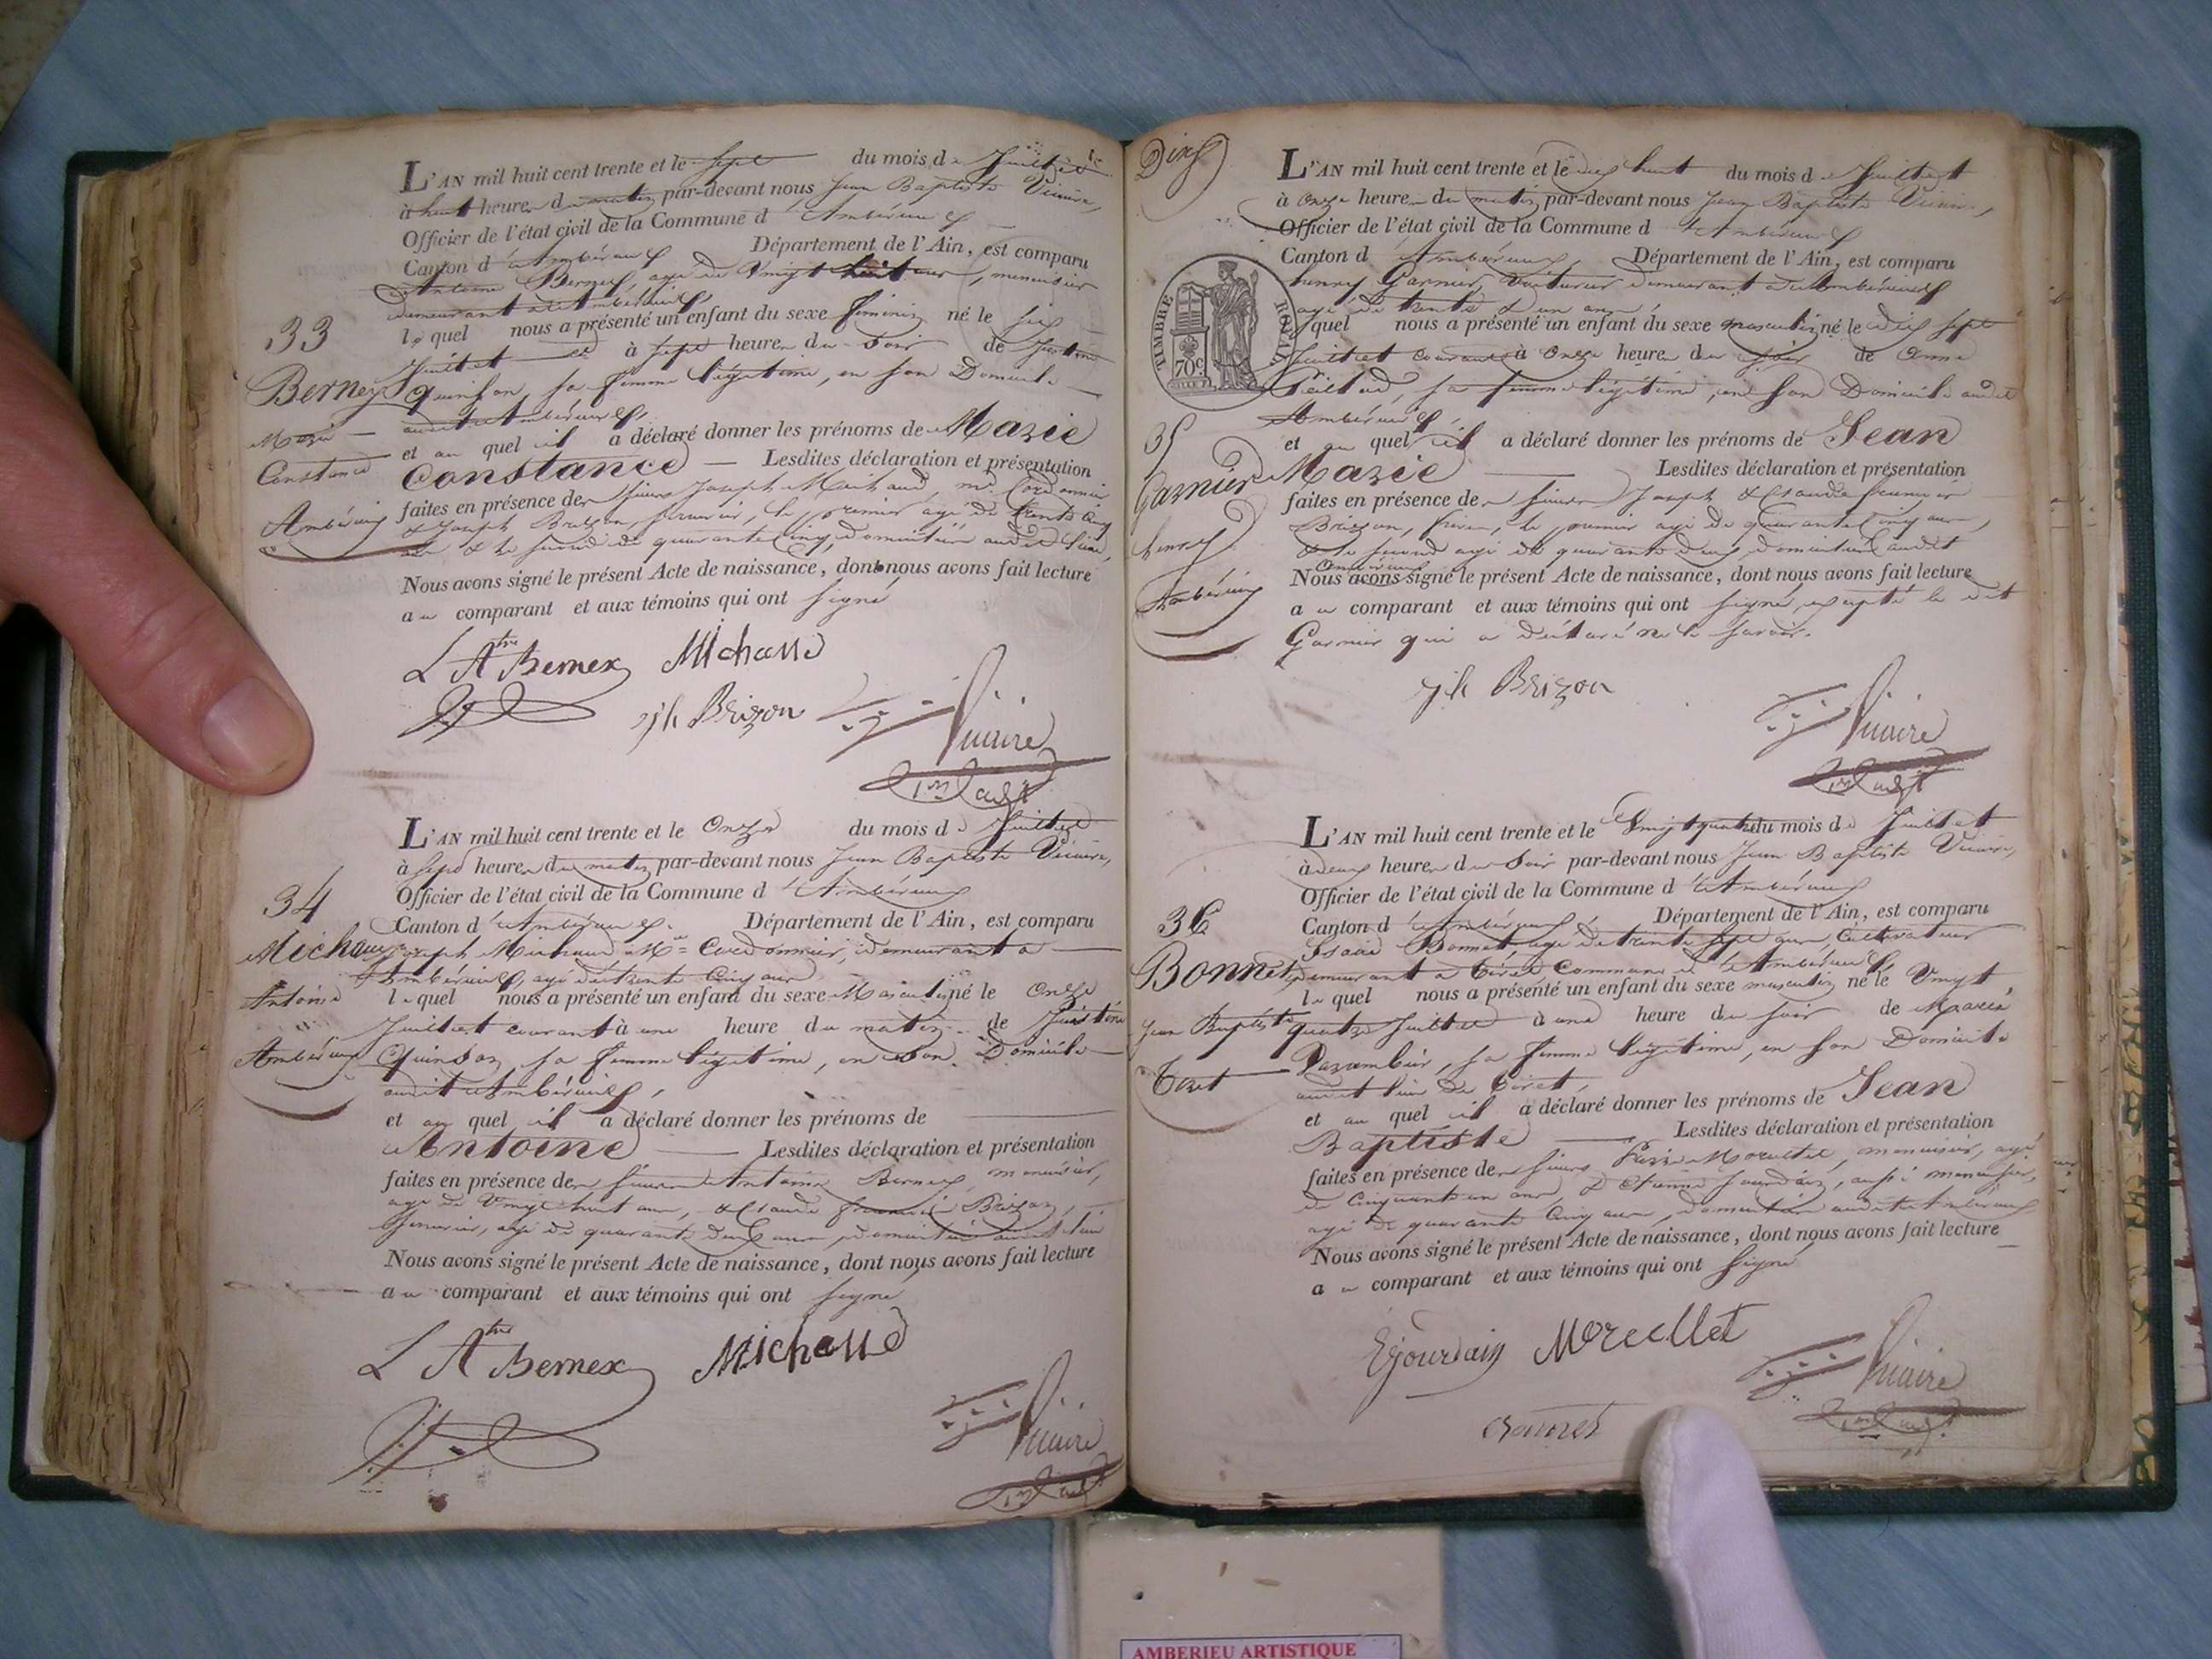 L'AN mil huit cent trente et le sept du mois de Juillet
à huit heures du matin par-devant nous Jean Baptiste Vicaire,
Officier de l'état civil de la Commune d'Ambérieux
Canton d'Ambérieux Département de l'Ain, est comparu
Antoine Bernex, agé de Vingt huit ans, menuisier
demeurant à Ambérieux,
33
lequel nous a présenté un enfant du sexe féminin né le six
Juillet à sept heures du Soir de Justine
Bernex
quinson, sa femme légitime, en son Domicile
audit Ambérieux,
Marie
et au quel il a déclaré donner les prénoms de Marie
Constance
Constance — Lesdites déclaration et présentation
faites en présence des sieurs Joseph Michaud, Me Cordonnier
Ambérieux
& Joseph Brizon, serrurier, le premier agé de trente cinq
ans & le second de quarante cinq, domiciliés audit lieu,
Nous avons signé le présent Acte de naissance, dont nous avons fait lecture
au comparant et aux témoins qui ont signé
L Atne Bernex Michaud
jh Brizon Vicaire
1er adjt
L'AN mil huit cent trente et le Onze du mois de Juillet
à sept heures du matin par-devant nous Jean Baptiste Vicaire,
Officier de l'état civil de la Commune d'Ambérieux
34
Canton d'Ambérieux. Département de l'Ain, est comparu
Michaud
Joseph Michaud, Me Cordonnier, demeurant à
Ambérieux, agé de trente Cinq ans
Antoine
lequel nous a présenté un enfant du sexe Masculin né le Onze
Juillet courant à une heure du matin de Justine
Ambérieux
Quinson, sa femme légitime, en son Domicile
audit Ambérieux,
et au quel il a déclaré donner les prénoms de
Antoine — Lesdites déclaration et présentation
faites en présence des sieurs Antoine Bernex, menuisier,
agé de Vingt huit ans, & Claude Brizon,
serrurier, agé de quarante deux ans, domiciliés audit lieu
Nous avons signé le présent Acte de naissance, dont nous avons fait lecture
au comparant et aux témoins qui ont signé
L Atne Bernex Michaud
Vicaire
1er adjt
L'AN mil huit cent trente et le dix huit du mois de Juillet
à onze heures du matin par-devant nous Jean Baptiste Vicaire,
Officier de l'état civil de la Commune d'Ambérieux
Canton d'Ambérieux, Département de l'Ain, est comparu
henry Garnier, Voiturier demeurant à Ambérieux
agé de trente & un ans
TIMBRE ROYAL
70c
lequel nous a présenté un enfant du sexe masculin né le dix sept
Juillet courant à onze heures du soir de Anne
sa femme légitime, en son Domicile audit
Ambérieux,
35
et au quel il a déclaré donner les prénoms de Jean
Garnier
Marie — Lesdites déclaration et présentation
faites en présence des sieurs Joseph & Claude
Brizon, frères, le premier agé de quarante Cinq ans,
henry
& le second agé de quarante deux, domiciliés audit
Ambérieux
Nous avons signé le présent Acte de naissance, dont nous avons fait lecture
Ambérieux
au comparant et aux témoins qui ont signé, excepté le dit
Garnier qui a déclaré ne le savoir.
jh Brizon
Vicaire
1er adjt
L'AN mil huit cent trente et le Vingt quatre du mois de Juillet
à deux heures du Soir par-devant nous Jean Baptiste Vicaire,
Officier de l'état civil de la Commune d'Ambérieux
36
Canton d'Ambérieux, Département de l'Ain, est comparu
Isaac Bonnet, agé de trente sept ans, Cultivateur
Bonnet
demeurant à Tiret Commune d'Ambérieux,
lequel nous a présenté un enfant du sexe masculin né le Vingt
Jean Baptiste
quatre Juillet à une heure du soir de Marie
sa femme légitime, en son Domicile
Tiret
audit lieu de Tiret,
et au quel il a déclaré donner les prénoms de Jean
Baptiste — Lesdites déclaration et présentation
faites en présence des sieurs Morellet, menuisier, agé
de cinquante un ans, & Etienne Jourdain, aussi menuisier,
agé de quarante Cinq ans, domiciliés audit Ambérieux
Nous avons signé le présent Acte de naissance, dont nous avons fait lecture
au comparant et aux témoins qui ont signé
Ejourdain Morellet
Vicaire
Bonnet
1er adjt
AMBERIEU ARTISTIQUE